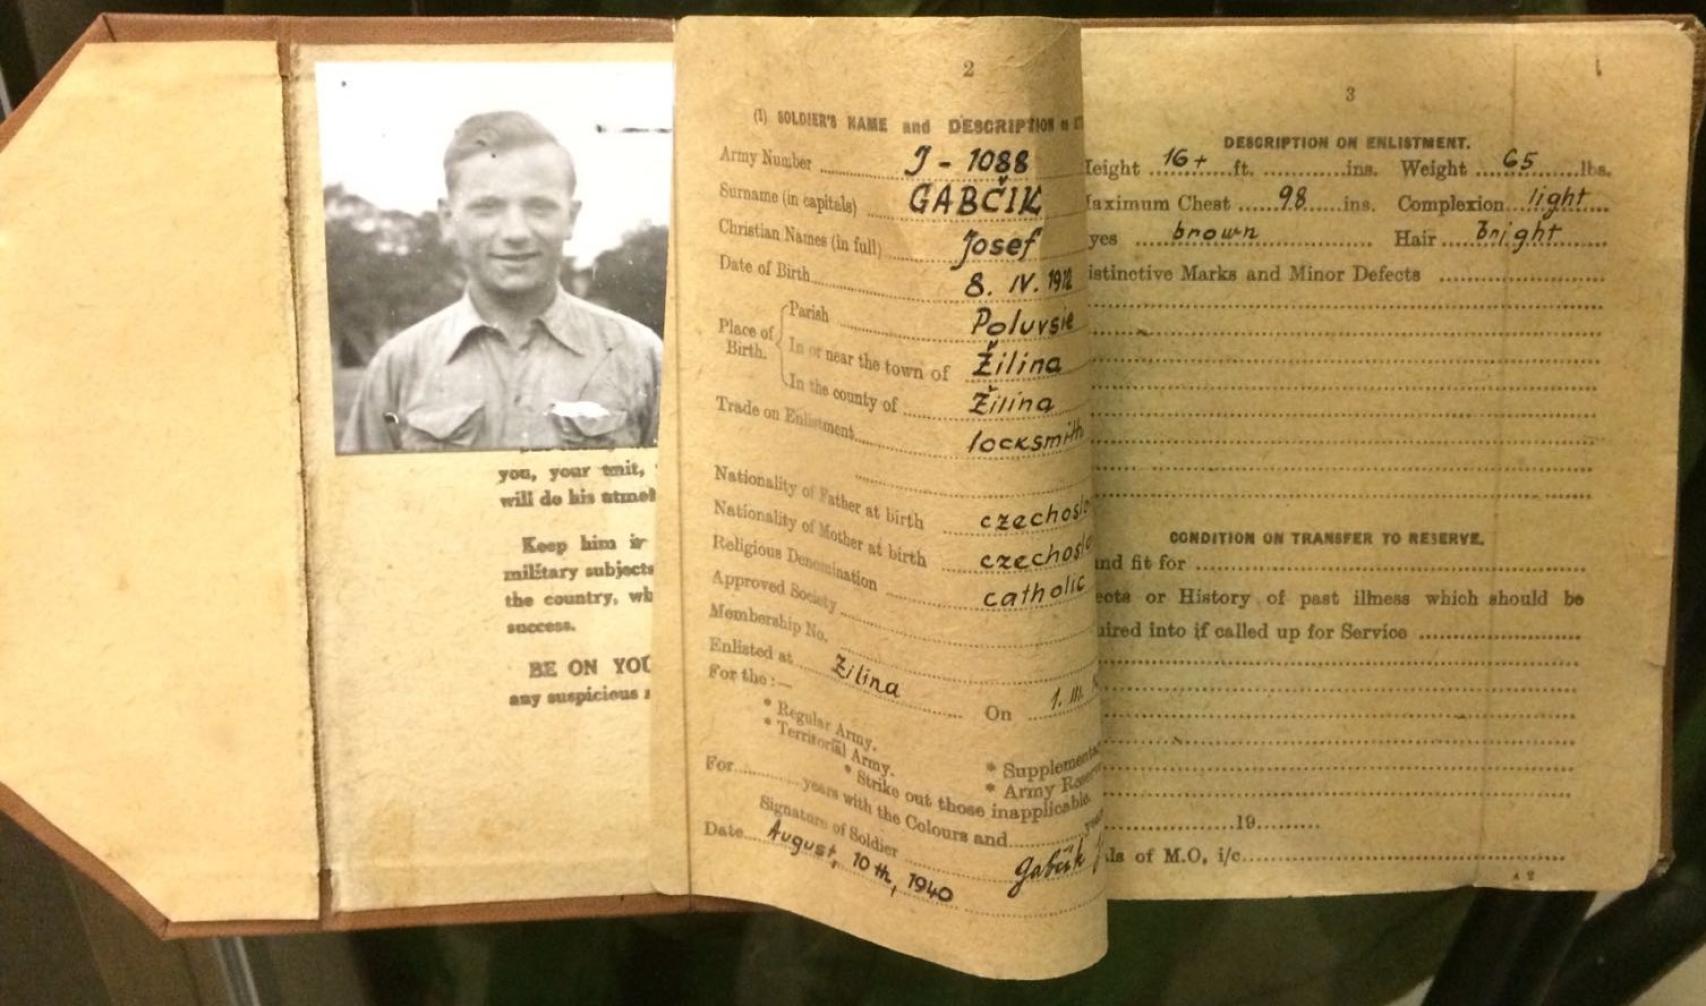 you, your unit,
will do his utmo
Keep him i
military subjects
the country, wh
success.
BE ON YOU
any suspicious
2
(1) SOLDIER'S NAME and DESCRIPTION
Army Number J - 1088
Surname (in capitals) GABČIK
Christian Names (in full) Josef
Date of Birth 8. IV. 1912
Place of Birth.
Parish Poluvsie
In or near the town of Žilina
In the county of Žilina
Trade on Enlistment locksmith
Nationality of Father at birth czechoslo
Nationality of Mother at birth czechoslo
Religious Denomination catholic
Approved Society
Membership No.
Enlisted at Žilina On 1. III.
For the :—
* Regular Army. * Supplementa
* Territorial Army. * Army Rese
* Strike out those inapplicable.
For years with the Colours and
Signature of Soldier Gabčík
Date August, 10th, 1940
3
DESCRIPTION ON ENLISTMENT.
Height 16+ ft. ins. Weight 65 lbs.
Maximum Chest 98 ins. Complexion light
yes brown Hair Bright
istinctive Marks and Minor Defects
CONDITION ON TRANSFER TO RESERVE.
and fit for
ects or History of past illness which should be
uired into if called up for Service
19
als of M.O, i/c
A 2